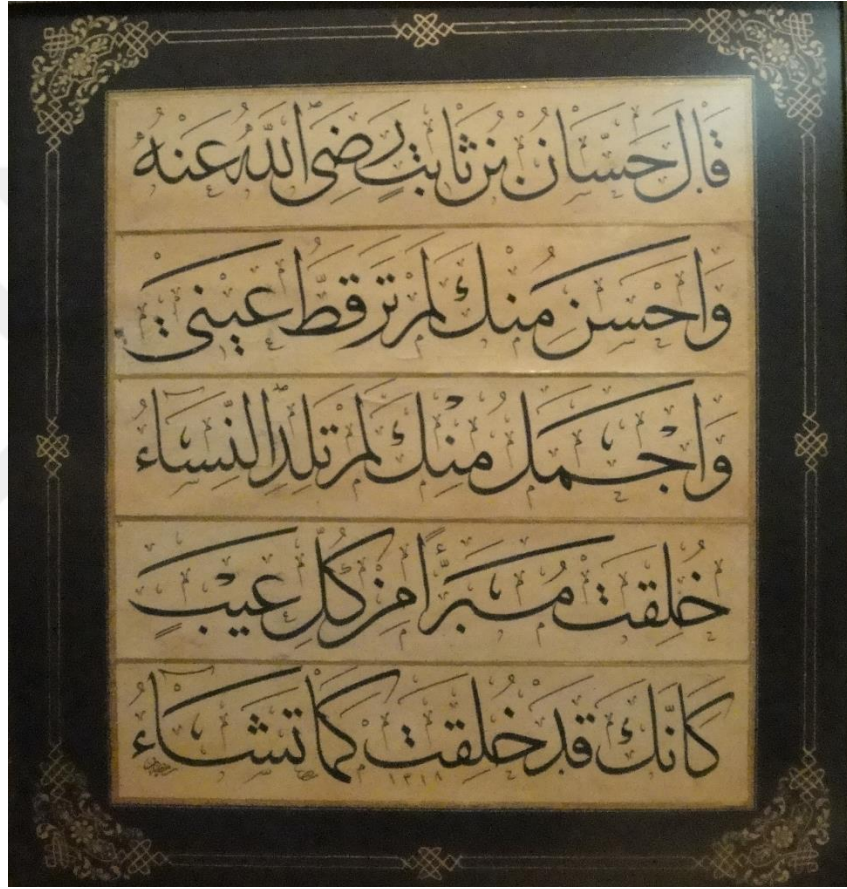 قَالَ حَسَّانُ بْنُ ثَابِتٍ رَضِيَ اللّٰهُ عَنْهُ
وَاَحْسَنِ مِنْكَ لَمْ تَرَ قَطُّ عَيْنِي
وَاَجْمَلِ مِنْكَ لَمْ تَلِدِ النِّسَاءُ
خُلِقْتَ مُبَرَّأً مِنْ كُلِّ عَيْبٍ
كَاَنَّكَ قَدْ خُلِقْتَ كَمَا تَشَاءُ
١٣١٨